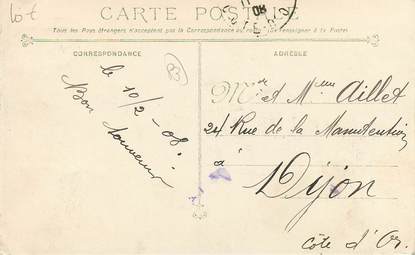 lot
CARTE POSTALE
08
Tous les Pays étrangers n'acceptent pas la Correspondance au recto. (Se renseigner à la Poste)
CORRESPONDANCE
ADRESSE
le 10/2-08.
Bon
souvenir
Mr et Mme Aillet
24 Rue de la Manutention
à
Dijon
Côte d'Or.